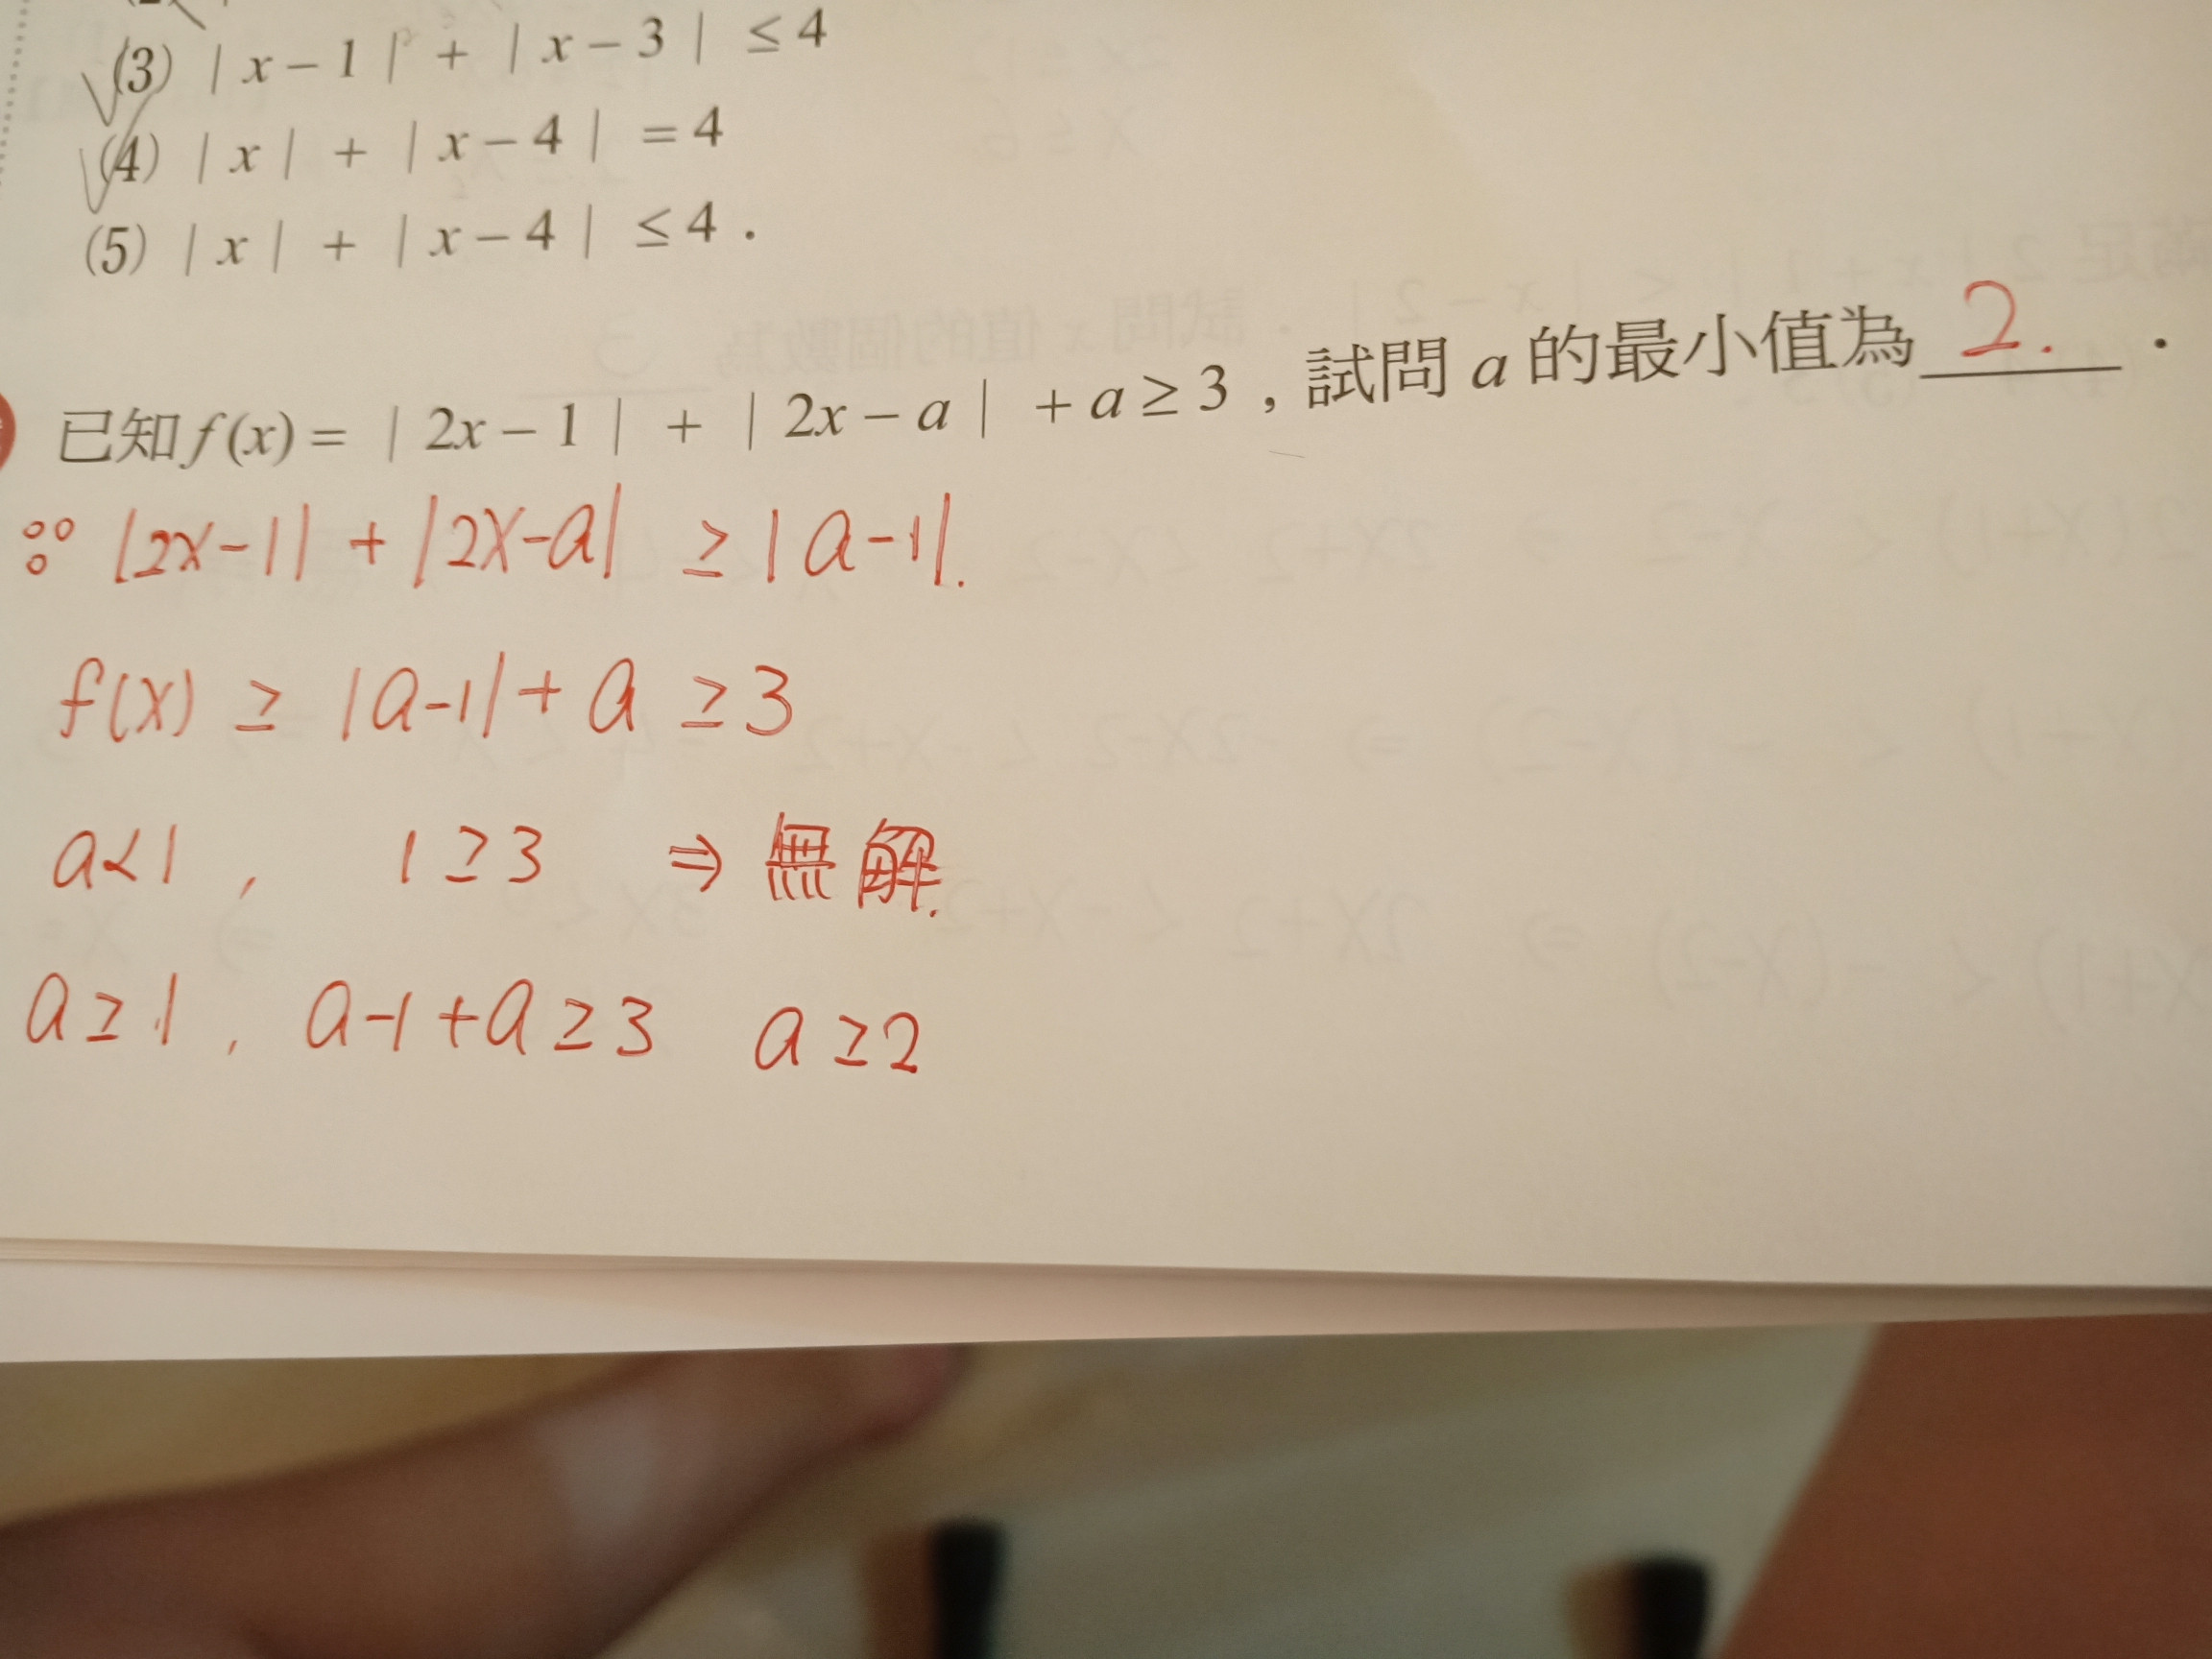 (3) | x − 1 | + | x − 3 | ≤ 4
(4) | x | + | x − 4 | = 4
(5) | x | + | x − 4 | ≤ 4 .
已知 f(x) = | 2x − 1 | + | 2x − a | + a ≥ 3 , 試問 a 的最小值為 2. .
∵ |2x-1| + |2x-a| ≥ |a-1|.
f(x) ≥ |a-1| + a ≥ 3
a<1 , 1 ≥ 3 ⇒ 無解.
a ≥ 1 , a-1+a ≥ 3 a ≥ 2